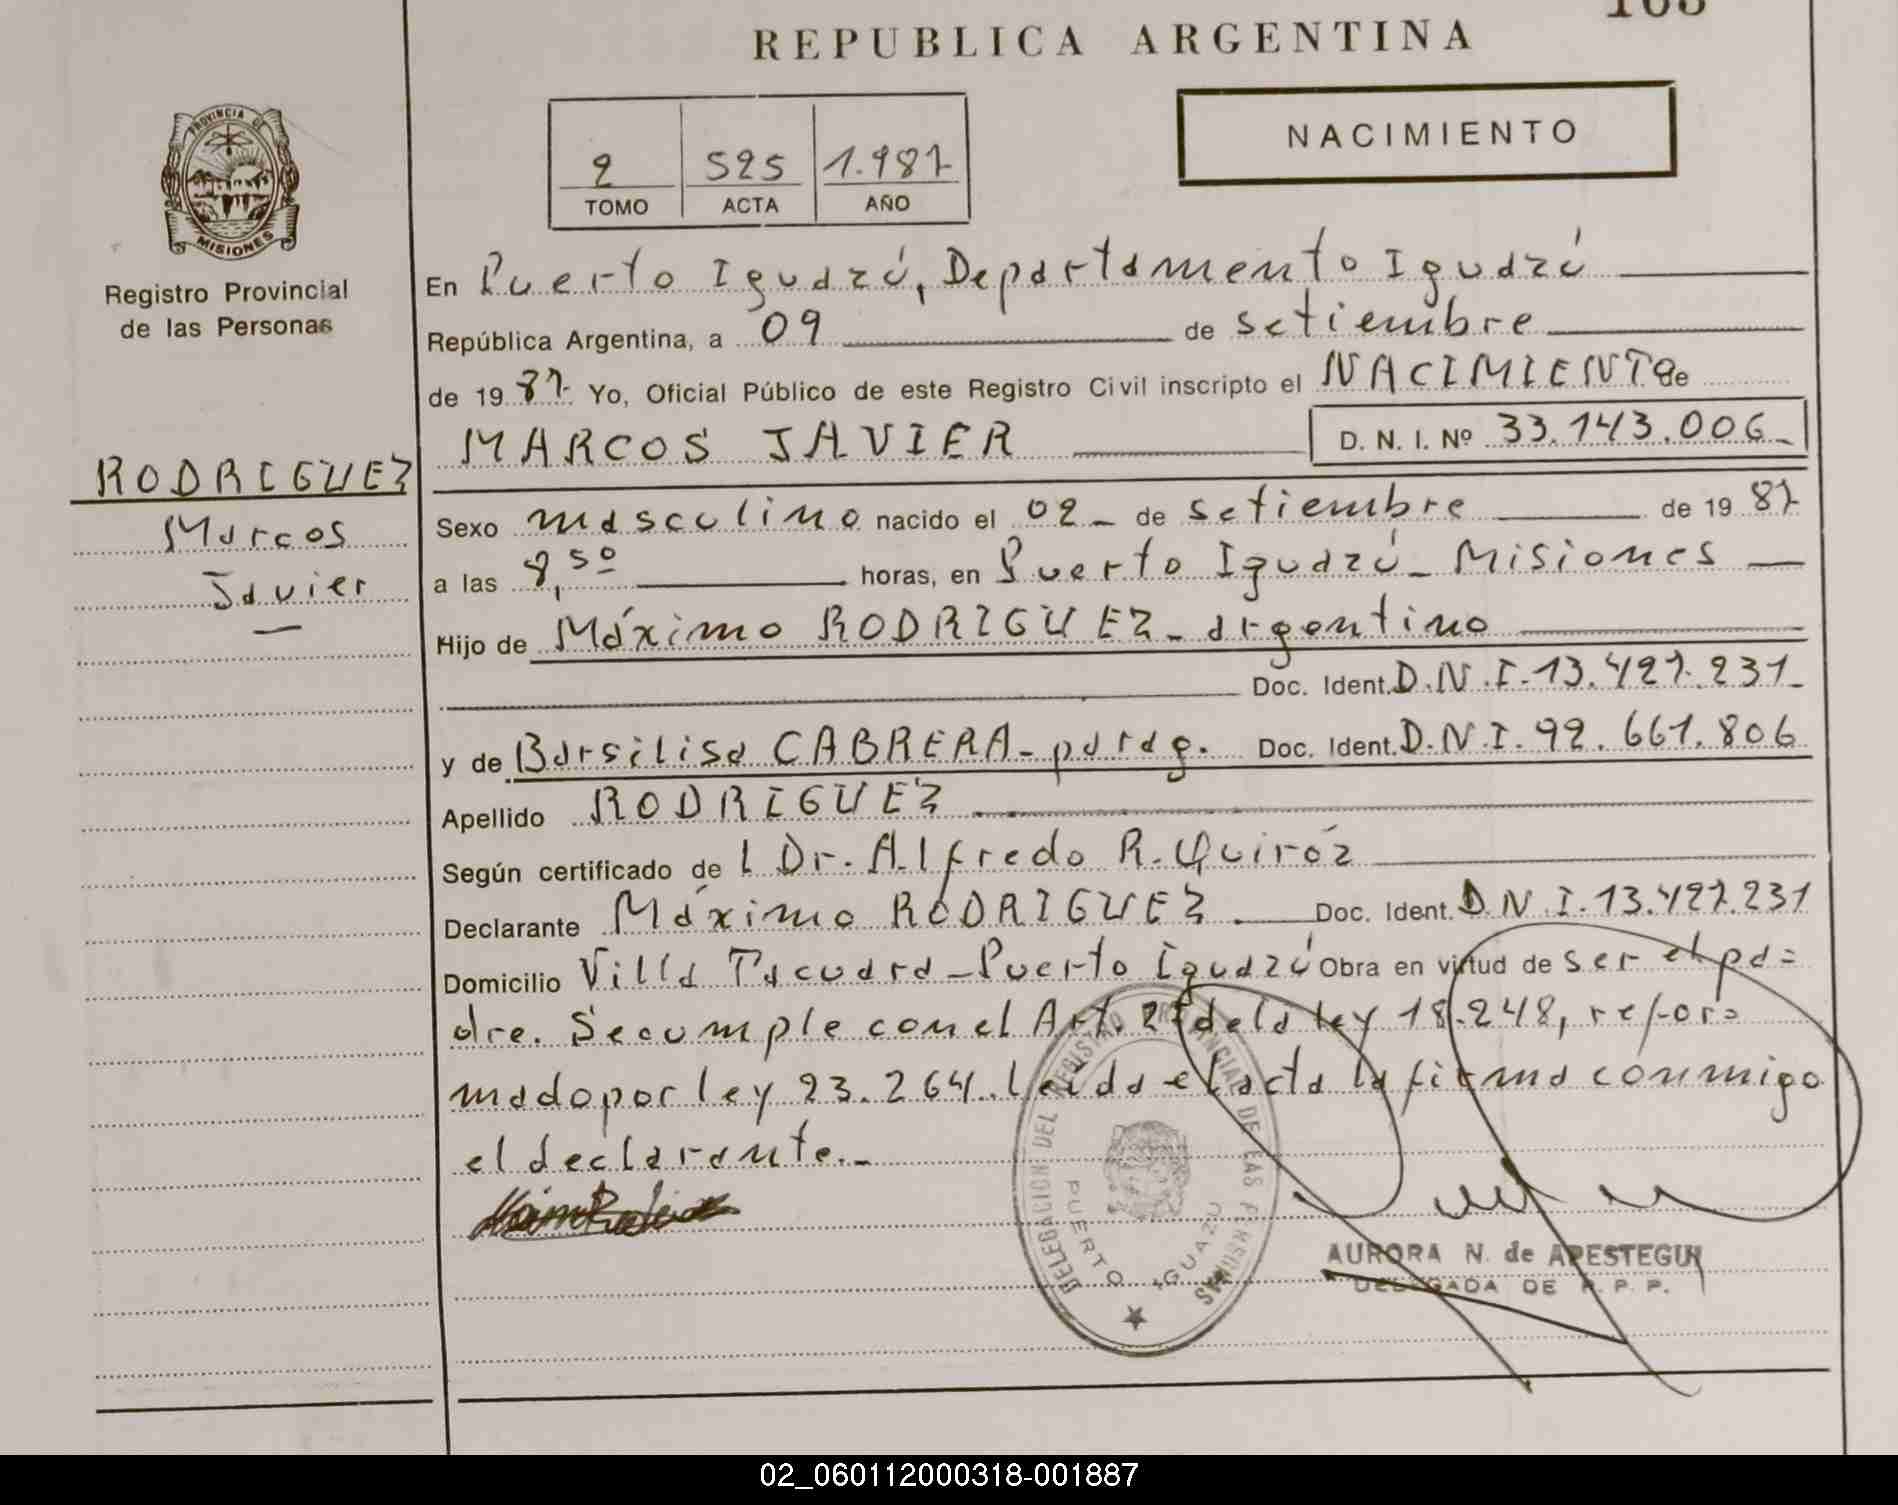 REPUBLICA ARGENTINA
PROVINCIA DE
MISIONES
Registro Provincial
de las Personas
NACIMIENTO
2 525 1.987
TOMO ACTA AÑO
En Puerto Iguazú, Departamento Iguazú
República Argentina, a 09 de setiembre
de 19 87 Yo, Oficial Público de este Registro Civil inscripto el NACIMIENTO de
MARCOS JAVIER D. N. I. Nº 33.143.006
RODRIGUEZ
Marcos
Javier
Sexo masculino nacido el 02 de setiembre de 19 87
a las 8,50 horas, en Puerto Iguazú - Misiones
Hijo de Máximo RODRIGUEZ - argentino
Doc. Ident. D.N.I. 13.427.231
y de Barsilisa CABRERA - parag. Doc. Ident. D.N.I. 92.661.806
Apellido RODRIGUEZ
Según certificado de l Dr. Alfredo R. Quiróz
Declarante Máximo RODRIGUEZ Doc. Ident. D.N.I. 13.427.231
Domicilio Villa Tacuara - Puerto Iguazú Obra en virtud de ser el pa=
dre. Se cumple con el Art. 2º de la ley 18.248, refor=
mado por ley 23.264. Leída el acta la firma conmigo
el declarante.-
DELEGACION DEL REGISTRO PROVINCIAL DE LAS PERSONAS
PUERTO IGUAZU
AURORA N. de APESTEGUI
DELEGADA DE R. P. P.
02_060112000318-001887